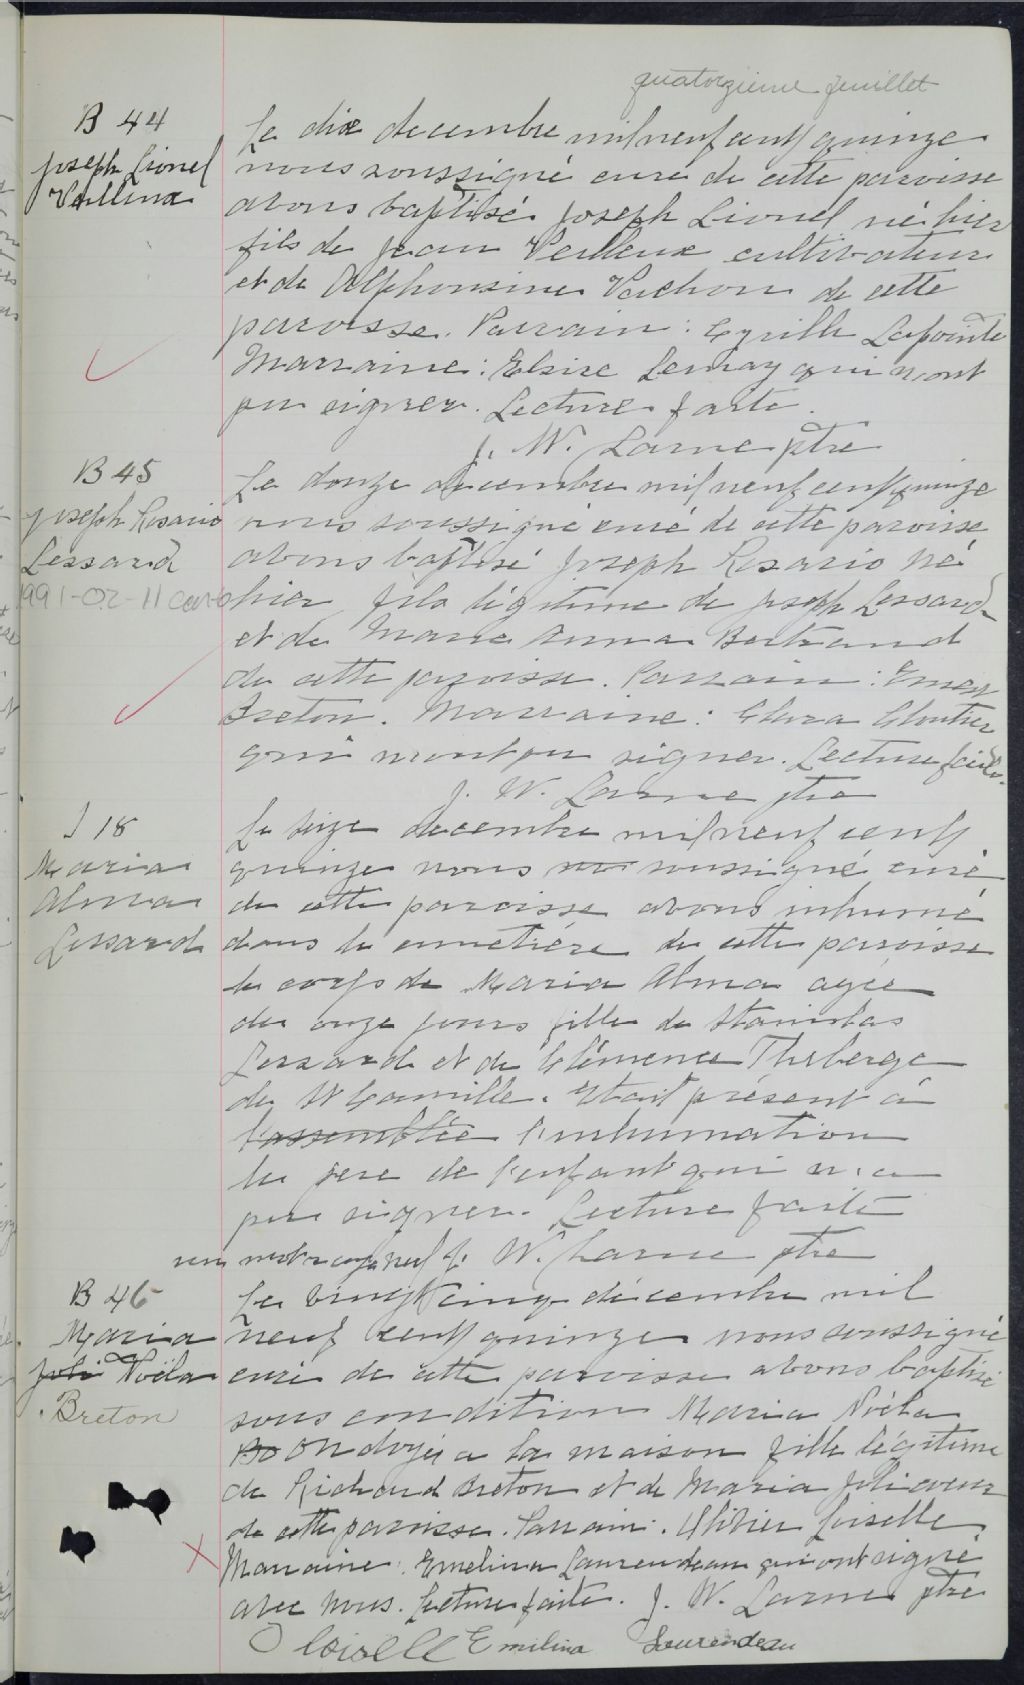 quatorzieme feuillet
B 44
Joseph Lionel
Veilleux
Le dix decembre mil neuf cent quinze
nous soussigné curé de cette paroisse
avons baptisé Joseph Lionel né hier
fils de Jean Veilleux cultivateur
et de Alphonsine Vachon de cette
paroisse. Parrain : Cyrille Lapointe
Marraine : Elsire Lemay qui n'ont
pu signer. Lecture faite.
J. W. Larue ptre
B 45
Joseph Rosario
Lessard
1991-02-11
Le douze decembre mil neuf cent quinze
nous soussigné curé de cette paroisse
avons baptisé Joseph Rosario né
hier, fils légitime de Joseph Lessard
et de Marie Anna Bertrand
de cette paroisse. Parrain : Emery
Breton. Marraine : Clara Cloutier
qui n'ont pu signer. Lecture faite.
J. W. Larue ptre
S 18
Maria
Alma
Lessard
Le seize decembre mil neuf cent
quinze nous soussigné curé
de cette paroisse avons inhumé
dans le cimetière de cette paroisse
le corps de Maria Alma agée
de onze jours fille de Stanislas
Lessard et de Clémence Theberge
de St Camille. Etait présent à
l'assemblée l'inhumation
le pere de l'enfant qui n'a
pu signer. Lecture faite
un mot rayé nul J. W. Larue ptre
B 46
Maria
Joli Noëla
Breton
Le vingt cinq décembre mil
neuf cent quinze nous soussigné
curé de cette paroisse avons baptisé
sous condition Maria Noëla
ondoyée a la maison fille légitime
de Richard Breton et de Maria Jolicoeur
de cette paroisse. Parrain : Olivier Loiselle
Marraine : Emelina Laurendeau qui ont signé
avec nous. Lecture faite. J. W. Larue ptre
O Loiselle Emilina Laurendeau